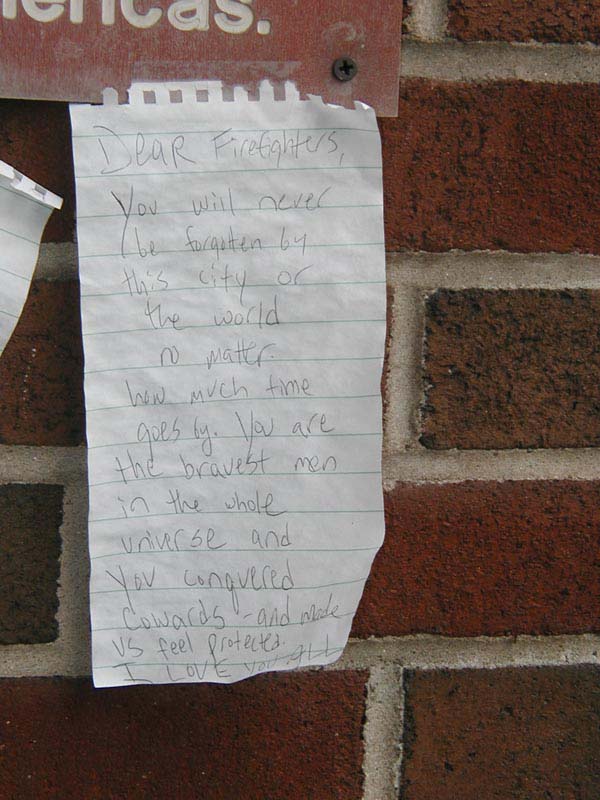 ericas.
Dear Firefighters,
You will never
be forgotten by
this city or
the world
no matter
how much time
goes by. You are
the bravest men
in the whole
universe and
you conquered
cowards - and made
us feel protected.
I LOVE you all